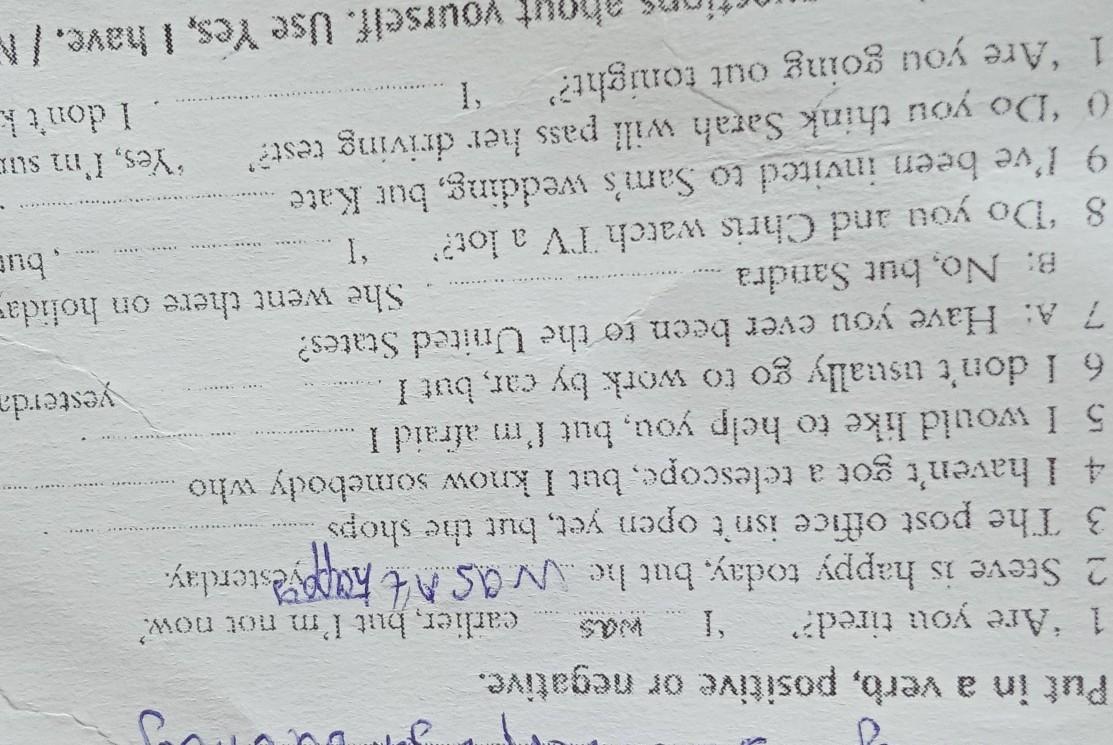 Put in a verb, positive or negative.
1 'Are you tired?' 'I was earlier, but I'm not now.'
2 Steve is happy today, but he wasn't happy yesterday.
3 The post office isn't open yet, but the shops .
4 I haven't got a telescope, but I know somebody who
5 I would like to help you, but I'm afraid I .
6 I don't usually go to work by car, but I yesterda
7 A: Have you ever been to the United States?
B: No, but Sandra . She went there on holiday
8 'Do you and Chris watch TV a lot?' 'I , but
9 I've been invited to Sam's wedding, but Kate .
0 'Do you think Sarah will pass her driving test?' 'Yes, I'm sur
1 'Are you going out tonight?' 'I . I don't k
about yourself. Use Yes, I have. / N